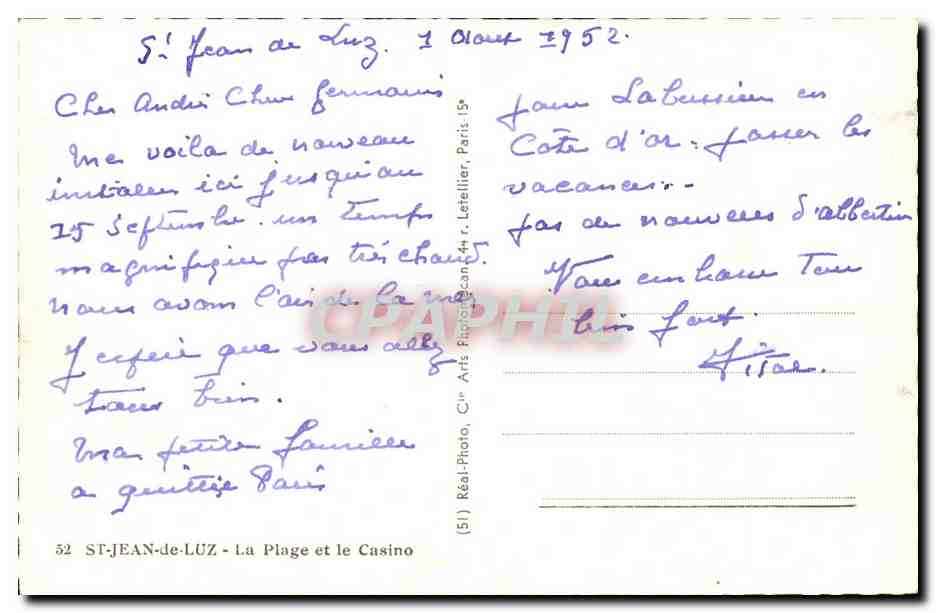 St Jean de Luz. 1 Aout 1952.
Cher André Chere Germaine
Me voila de nouveau
installee ici jusqu'au
15 Septembre. un temps
magnifique pas très chaud.
nous avons l'air de la mer
J'espere que vous allez
tous bien.
Ma petite famille
a quittée Paris
pour Labussiere en
Côte d'or. passer les
vacances..
pas de nouvelles d'albertine
Vous embrasse Tous
bien fort.
52 ST-JEAN-de-LUZ - La Plage et le Casino
(51) Réal-Photo, Cie Arts Photomécan. 44 r. Letellier, Paris-15e
CPAPHIL